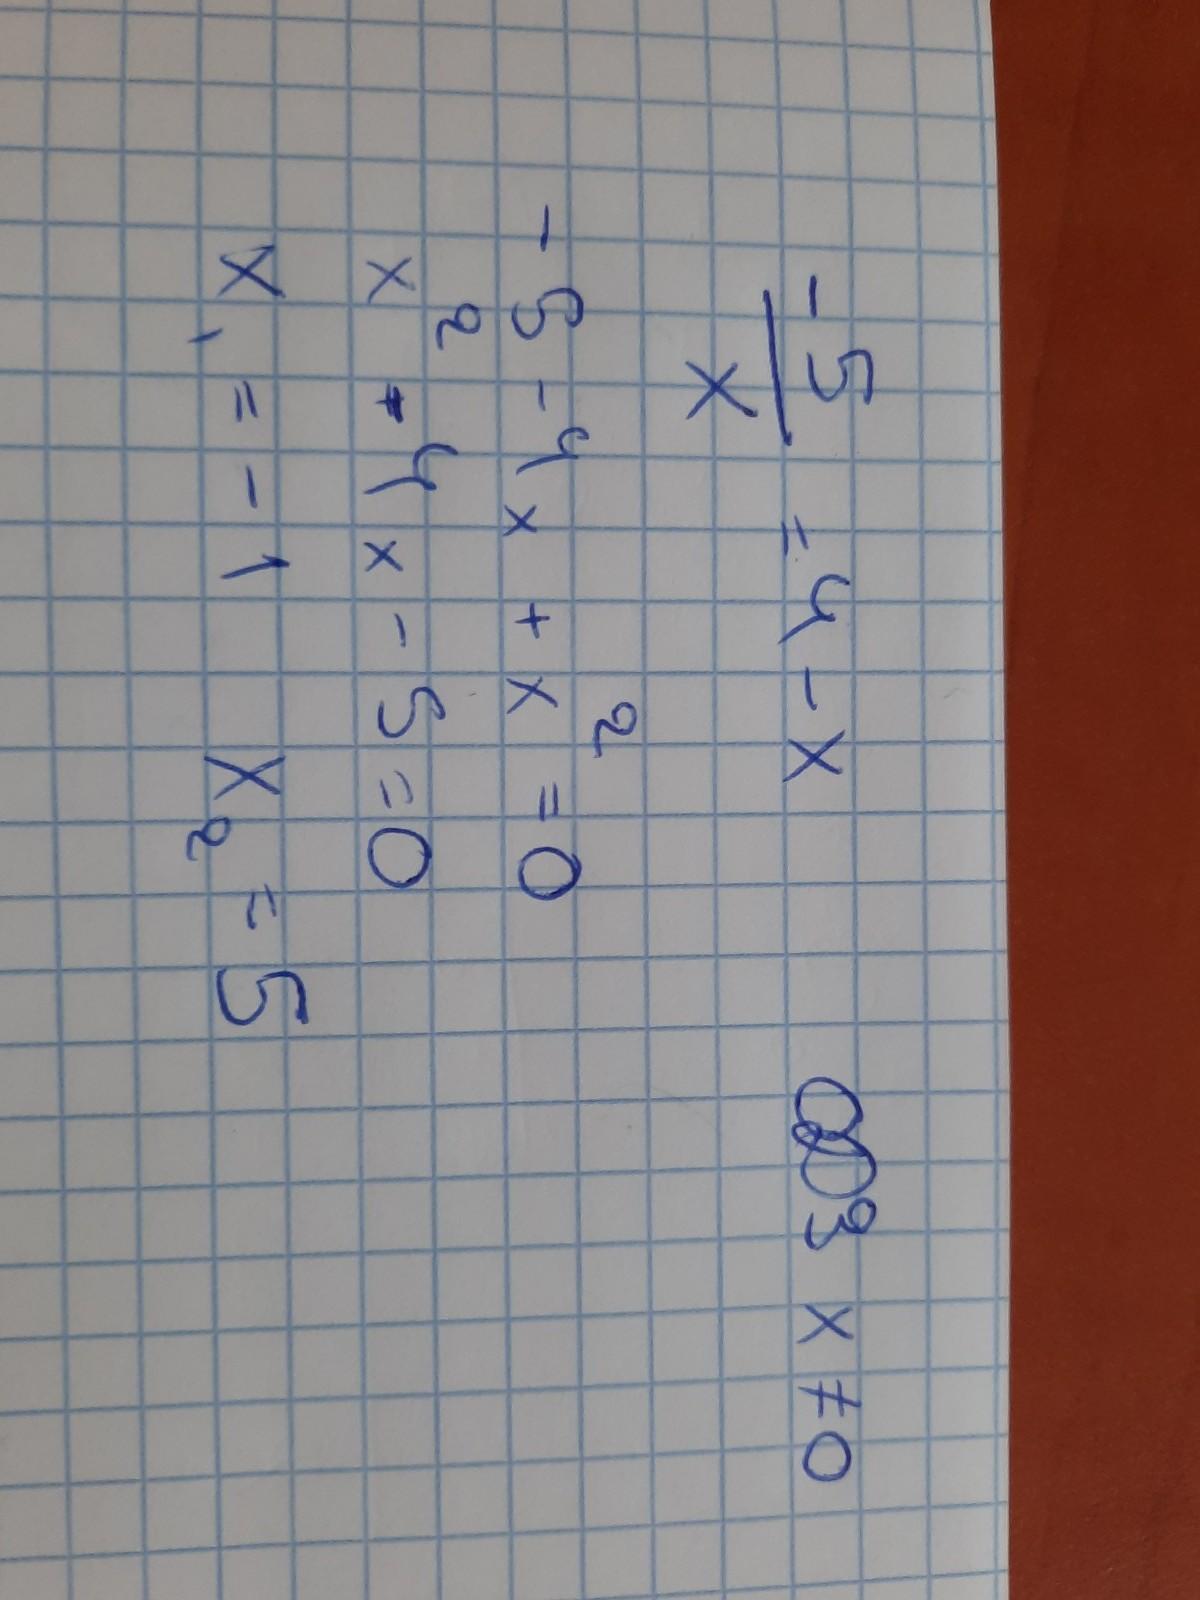 -5/x = 4 - x ОДЗ x ≠ 0
- 5 - 4x + x² = 0
x² + 4x - 5 = 0
x₁ = - 1 x₂ = 5